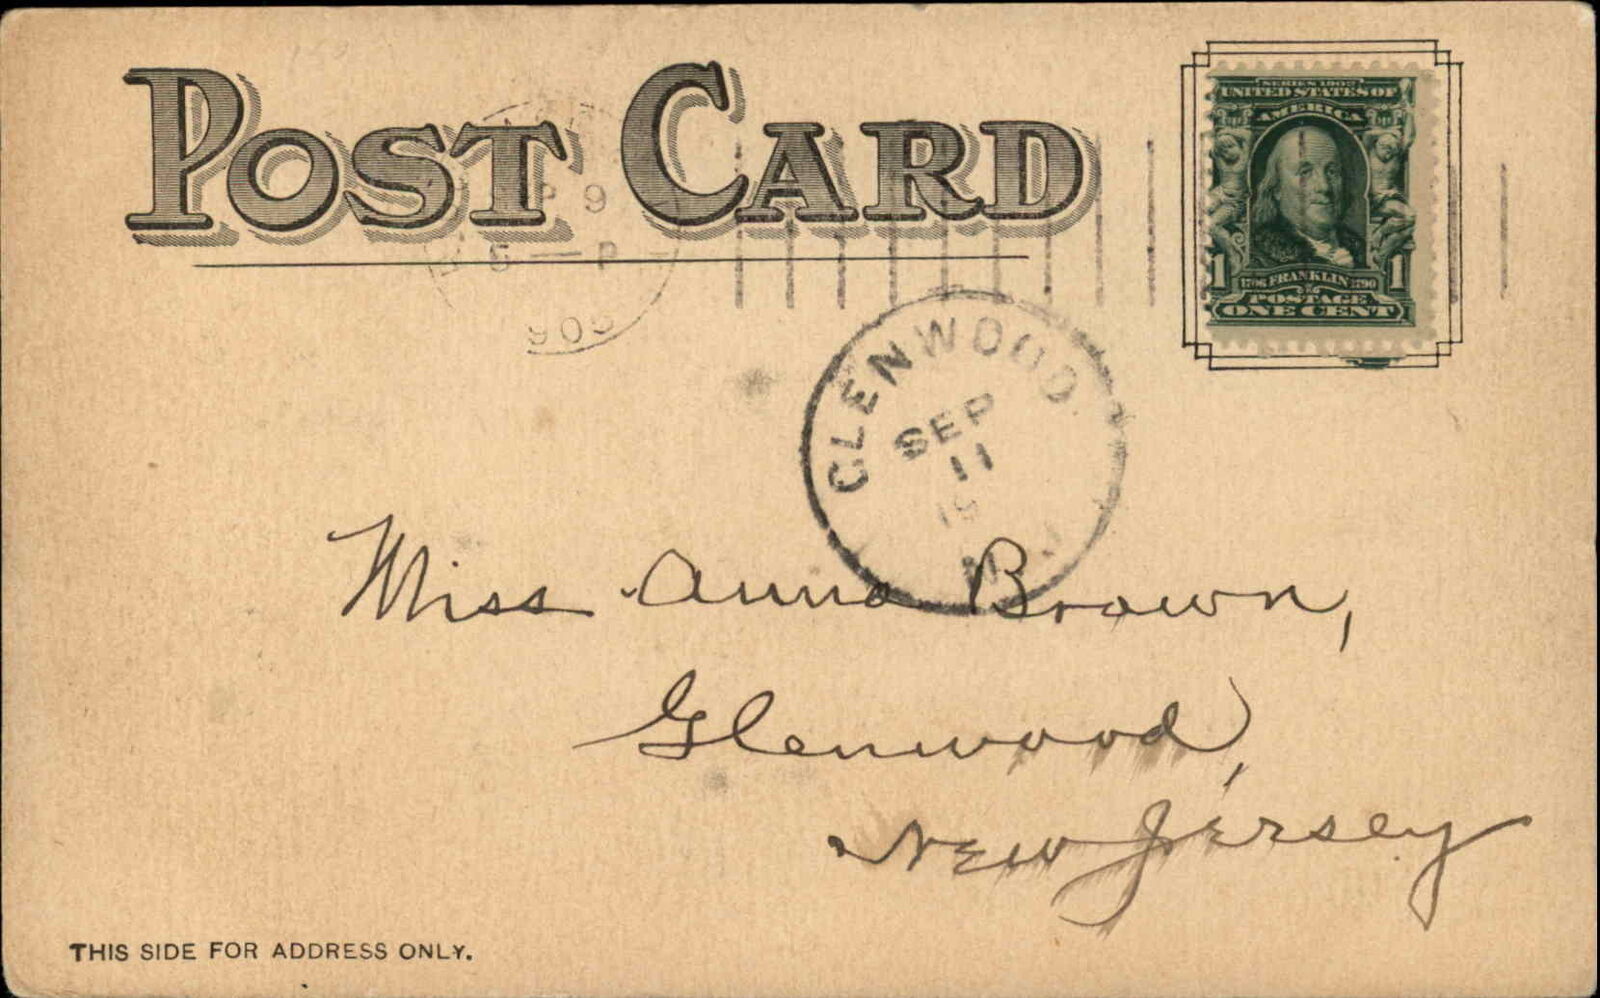 POST CARD
SERIES 1902
UNITED STATES OF
AMERICA
1706 FRANKLIN 1790
1 POSTAGE 1
ONE CENT
P 9
5 — P
905
GLENWOOD
SEP
11
19
N. J.
Miss Anna Brown,
Glenwood,
New Jersey
THIS SIDE FOR ADDRESS ONLY.